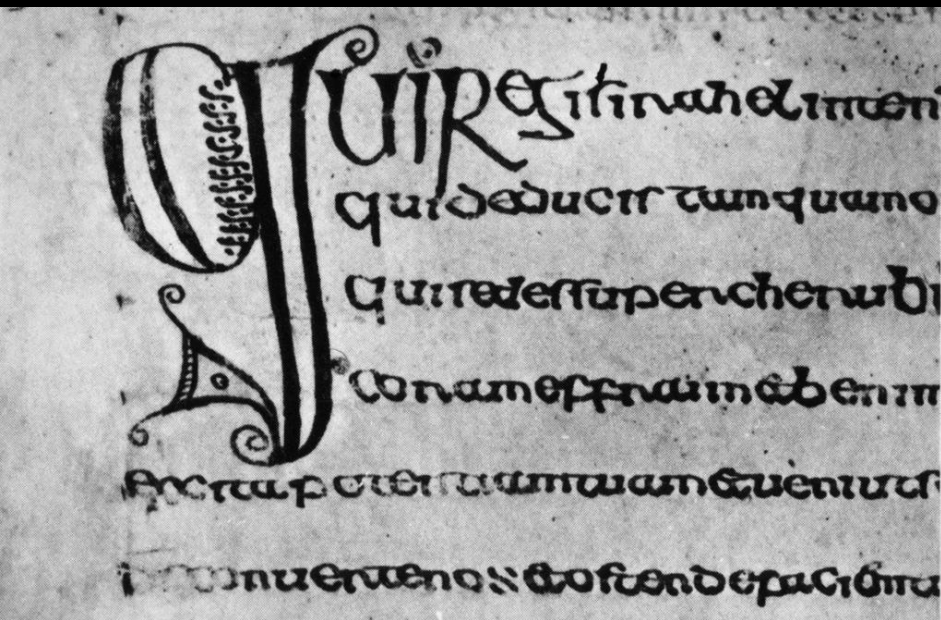 QUI Regis israhel inten
qui deducis tamquam o
qui sedes super cherubi
coram effraim & beniam
excita potentiam tuam & ueni ut s
conuerte nos & ostende faciem tu